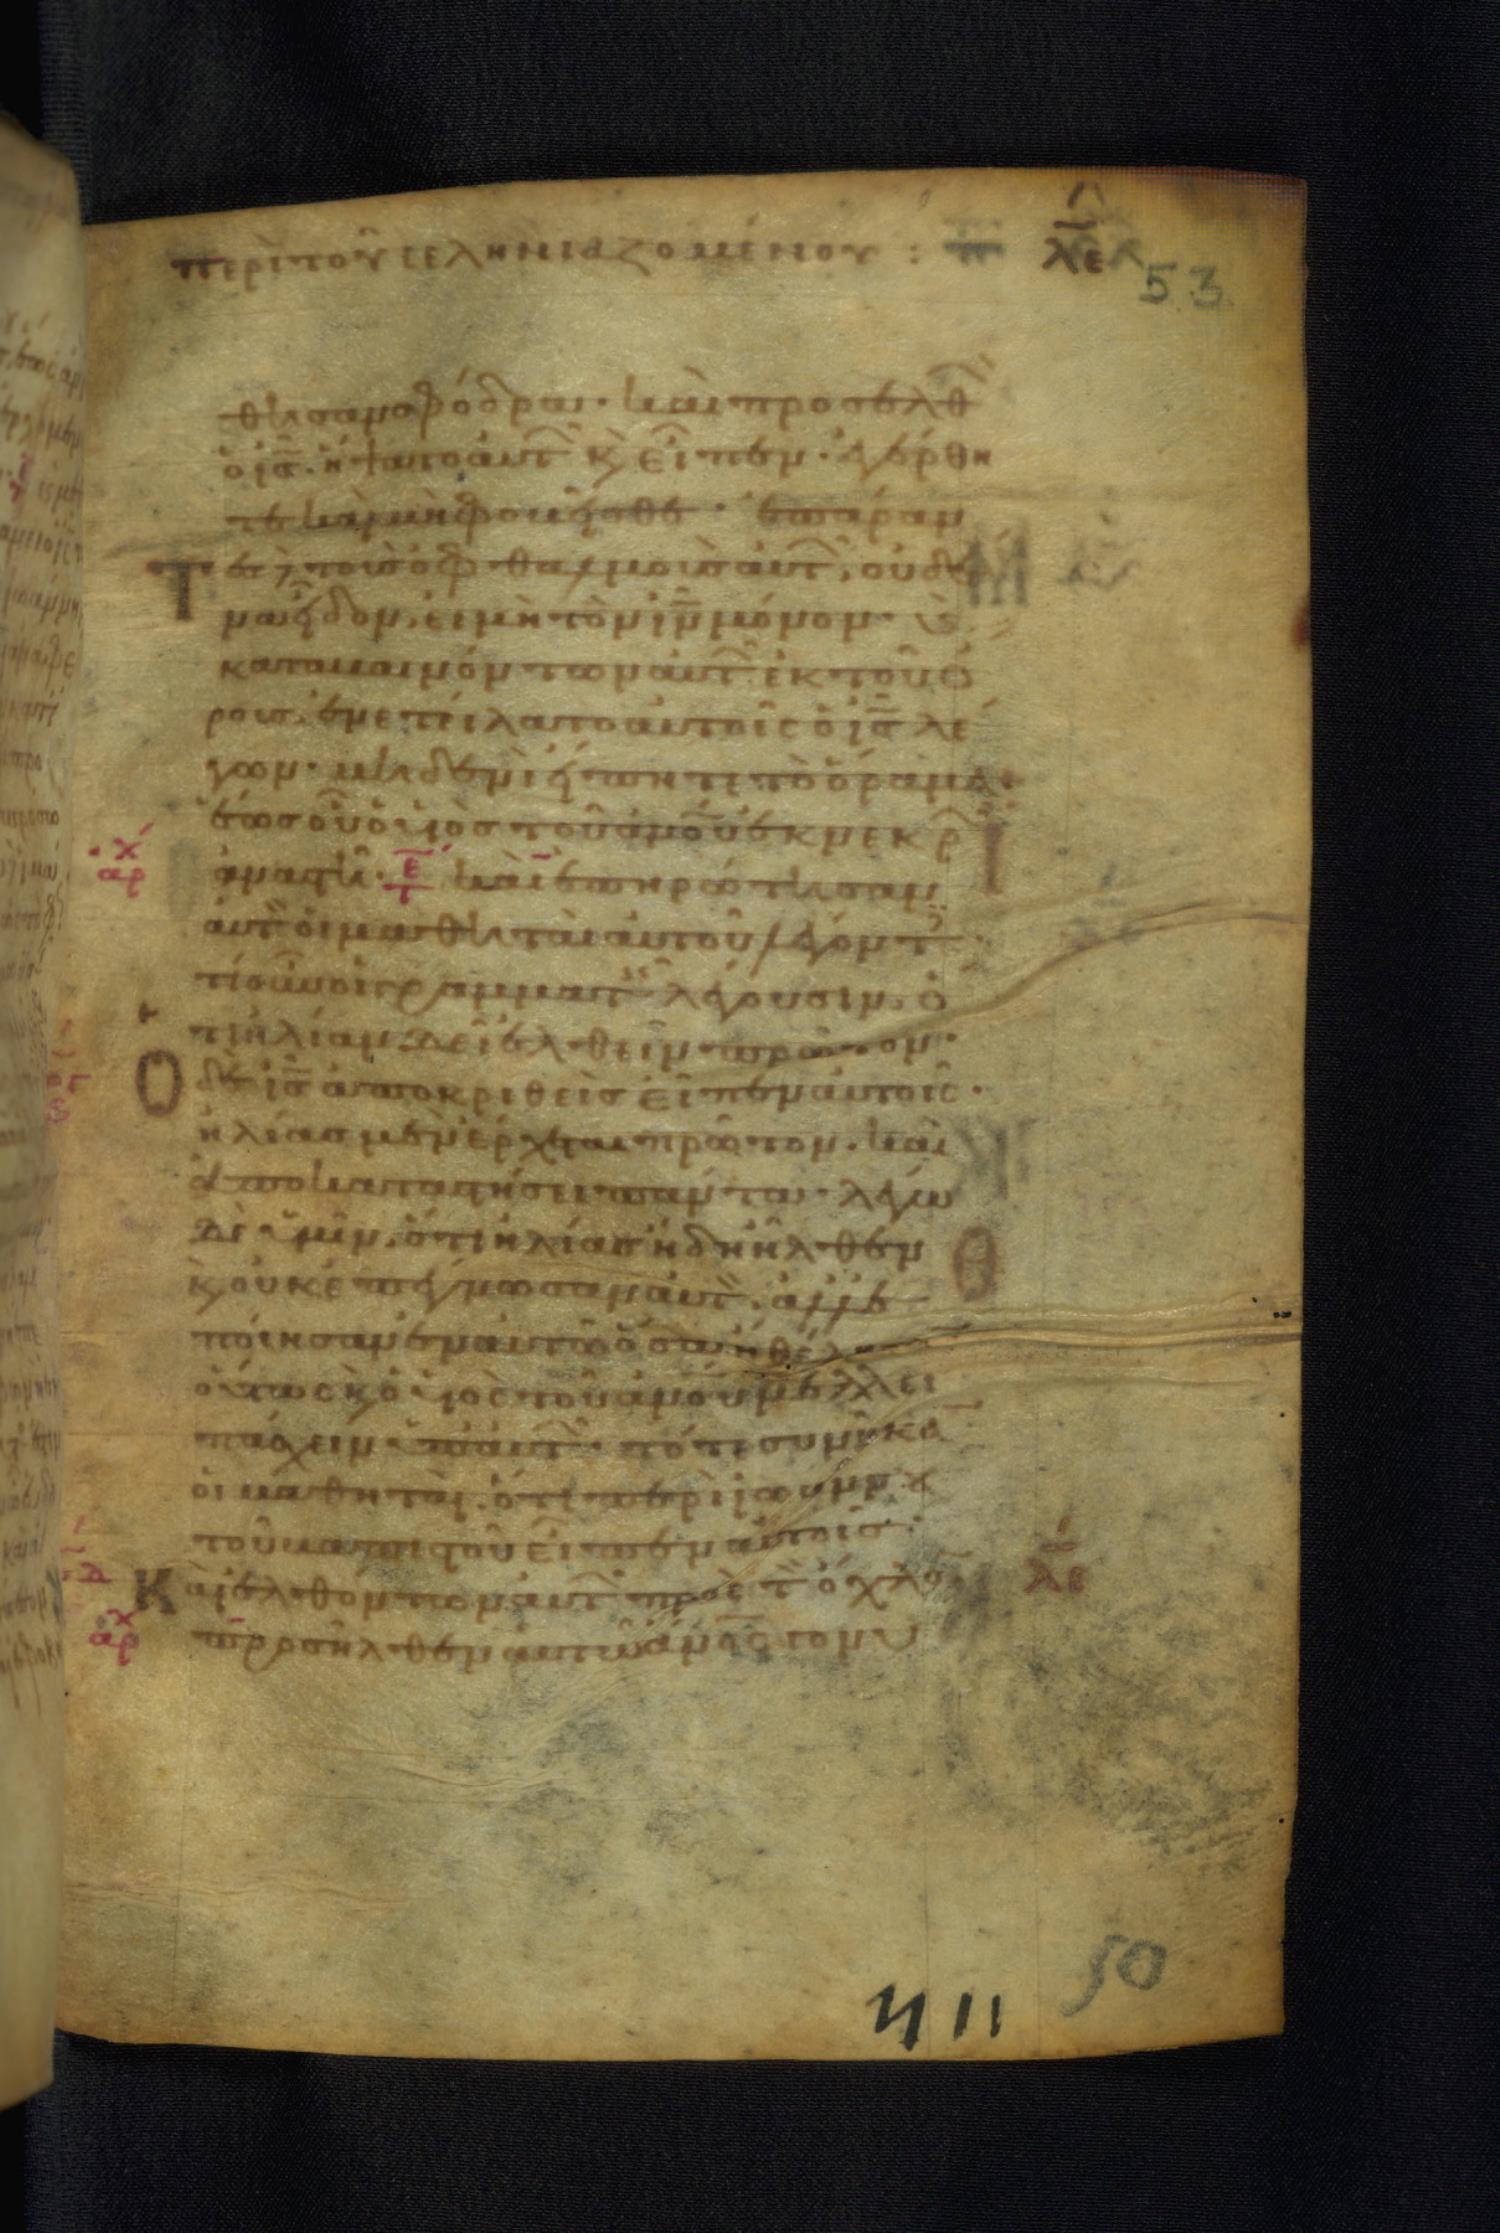 περὶ τοῦ σεληνιαζομένου : λε
53
θησαν σφόδρα· καὶ προσελθ
ὁ ις̅. ἥψατο αὐτ κ̀ εἶπεν· ἐγέρθη
τε καὶ μὴ φοβεῖσθε· ἐπάραν
τες τοὺς ὀφθαλμοὺς αὐτ, οὐδέ
να εἶδον, εἰ μὴ τὸν ιν̅ μόνον·
καταβαινόντων αὐτ ἐκ τοῦ ὄ
ρους. ἐνετείλατο αὐτοῖς ὁ ις̅ λέ
γων· μηδενὶ εἴπητε τὸ ὅραμα·
ἕως οὗ ὁ υἱὸς τοῦ ἀνου ἐκ νεκρ
ἀναστῆ· τ̅ε̅ καὶ ἐπηρώτησαν
ἀρχ
αὐτ οἱ μαθηταὶ αὐτοῦ λέγοντ
τί οὖν οἱ γραμματ λέγουσιν, ὅ
τι ηλίαν δεῖ ἐλθεῖν πρῶτον·
Ο δὲ ις̅ ἀποκριθεὶς εἶπεν αὐτοῖς·
ηλίας μὲν ἔρχεται πρῶτον. καὶ
ἀποκαταστήσει πάντα· λέγω
δὲ ὑμῖν, ὅτι ηλίας ἤδη ἦλθεν
κ̀ οὐκ ἐπέγνωσαν αὐτ, ἀλλ' ἐ
ποίησαν ἐν αὐτῶ ὅσα ἠθέλησ
οὕτως κ̀ ὁ υἱὸς τοῦ ἀνου μέλλει
πάσχειν ὑπ' αὐτ· τότε συνῆκα
οἱ μαθηταὶ, ὅτι περὶ ἰωάννου
τοῦ βαπτιστοῦ εἶπεν αὐτοῖς·
Καὶ ἐλθόντων αὐτ πρὸς τ ὄχλο
λε
ἀρχ
προσῆλθεν αὐτῶ ἀνος γονυ
50
411